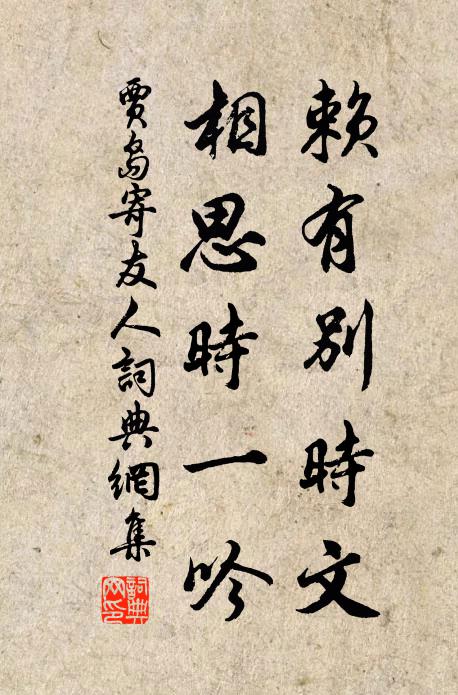 賴有別時文
相思時一吟
賈島寄友人詞典網集
詞典網印